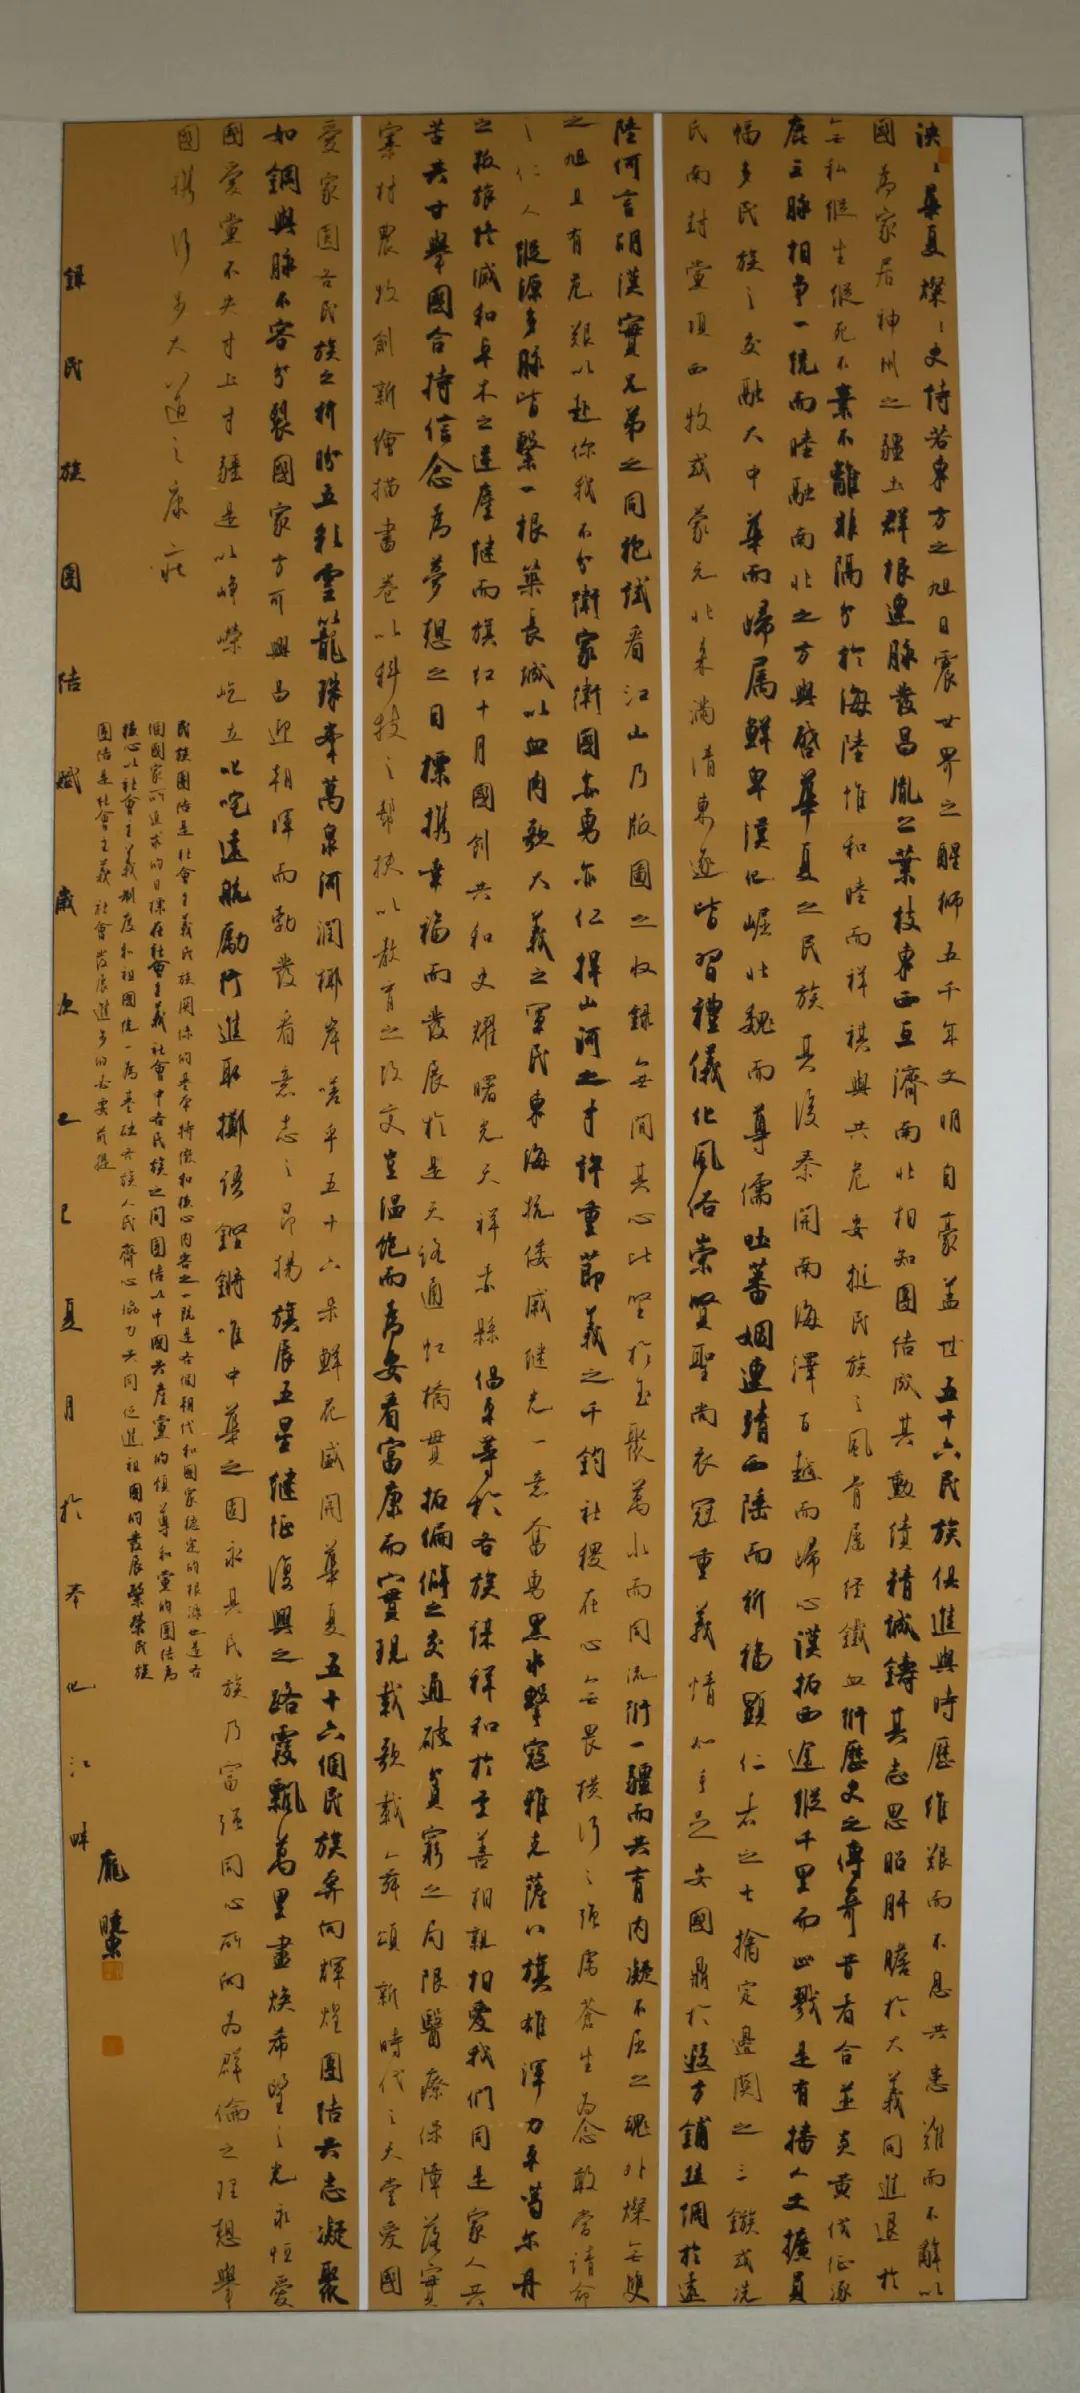 泱泱華夏燦燦史詩若東方之旭日震世界之醒獅五千年文明自豪蓋世五十六民族俱進與時歷維艱而不息共患難而不辭以
國為家居神州之疆土群根連脉發昌胤之葉枝東西互濟南北相知團結成其勳績精誠鑄其志思昭肝膽於大義同進退於
無私縱生縱死不棄不離非隔分於海陸惟和睦而祥祺與共危安挺民族之風骨屢經鐵血衍歷史之傳奇昔看合並炎黃伐征逐
鹿三脉相爭一統而睦融南北之方輿啓華夏之民族具後秦開南海澤百越而歸心漢拓西道縱千里而出戮是有播人土擴員
幅多民族之交融大中華而歸屬鮮卑漢化崛北魏而尊儒吐蕃姻連靖西陲而析楊顯仁者之士擒定邊關之三鏃或冼
氏南封黨項西牧或蒙元北來滿清東逐皆習禮儀化風俗崇賢聖尚衣冠重義情如手足安國鼎於遐方鋪絲綢於遠
陸何言胡漢實兄弟之同袍試看江山乃版圖之收錄無間其心比堅於金聚萬水而同流衍一疆而共育内凝不屈之魂外燦無雙
之旭且有危艱以赴你我不分衛家衛國亦勇亦仁捍山河之寸許重節義之千鈞社稷在心無畏橫行之強虜蒼生為念敢當請命
之仁人縱源多脉皆繫一根築長城以血肉歌大義之軍民東海抗倭戚繼光一意奮勇黑水擊寇雅克薩八旗雄渾力平葛尔丹
之叛旅終滅和卓木之逆塵繼而旗紅十月國創共和史耀曙光天祥赤縣倡平等於各族謀祥和於至善相親相愛我們同是家人共
苦共甘舉國合持信念為夢想之目標攜幸福而發展於是天路通虹橋貫拓偏僻之交通破貧窮之局限醫療保障落實
寨村農牧創新繪描畫卷以科技之幫扶以教育之改文豈溫飽而為安看富康而實現載歌載舞頌新時代之天堂愛國
愛家圓各民族之祈盼五彩雲籠珠峯萬泉河潤椰岸嗟乎五十六朵鮮花盛開華夏五十六個民族奔向輝煌團結共志凝聚
如鋼與脉不容分裂國家方可興昌迎朝暉而勃發看意志之昂揚旗展五星繼征復興之路霞飄萬里畫煥希望之光永恒愛
國愛黨不失寸土寸疆是以崢嶸屹立叱咤遠航勵行進取擲語鏗鏘唯中華之固永具民族乃富強同心所向為群倫之理想舉
國攜行步大道之康莊
民族團結是社會主義民族關係的基本特徵和核心内容之一既是各個朝代和國家穩定的根源也是各
個國家所追求的目標在社會主義社會中各民族之間團結以中國共產黨的領導和黨的團結為
核心以社會主義制度和祖國統一為基礎各族人民齊心協力共同促進祖國的發展繁榮民族
團結是社會主義社會發展進步的必要前提
錄民族團結賦歲次乙巳夏月於奉化江畔
龐曉東